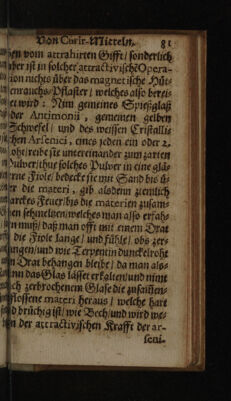 Von Curir-Mitteln. 81
gen vom attrahirten Gifft/ sonderlich
aber ist in solcher attractivischē Opera-
tion nichts über das magnetische Hüt-
tenrauchs-Pflaster/ welches also berei-
tet wird: Nim gemeines Spießglaß
der Antimonii, gemeinen gelben
Schwefel/ und des weissen Cristallis
chen Arsenici, eines jeden ein oder 2.
Loht/ reibe sie untereinander zum zarten
Pulver/ thue solches Pulver in eine glä-
rne Fiole/ bedecke sie mit Sand biß ü-
ber die materi, gib alsdenn ziemlich
starckes Feuer/ biß die materien zusam-
en schmeltzen/ welches man also erfah-
n muß/ daß man offt mit einem Drat
die Fiole lange/ und fühle/ obs zer-
ungen/ und wie Terpentin dunckelroht
n Drat behangen bleibe/ da man als-
nn das Glas lässet erkalten/ und nimt
ch zerbrochenem Glase die zusam̄en-
flossene materi heraus/ welche hart
d brüchig ist/ wie Bech/ und wird we-
n der attractivischen Krafft der ar-
seni-